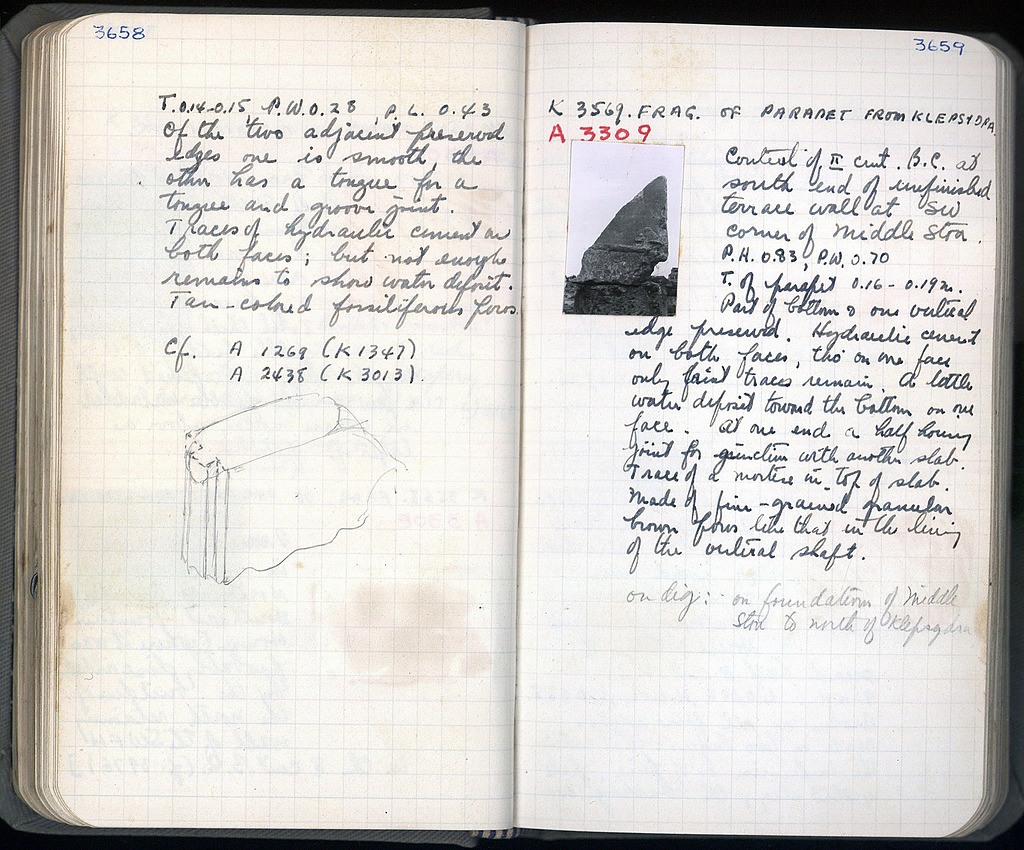 3658
T. 0.14-0.15, P.W. 0.28, P.L. 0.43
Of the two adjacent preserved
edges one is smooth, the
other has a tongue for a
tongue and groove joint.
Traces of hydraulic cement on
both faces; but not enough
remains to show water deposit.
Tan-colored fossiliferous poros.
Cf. A 1269 (K 1347)
A 2438 (K 3013).
3659
K 3569. FRAG. OF PARAPET FROM KLEPSYDRA.
A 3309
Context of II cent. B.C. at
south end of unfinished
terrace wall at SW
corner of Middle Stoa.
P.H. 0.83, P.W. 0.70
T. of parapet 0.16-0.19m.
Part of bottom & one vertical
edge preserved. Hydraulic cement
on both faces, tho' on one face
only faint traces remain. A little
water deposit toward the bottom on one
face. At one end a half housing
joint for junction with another slab.
Trace of a mortise in top of slab.
Made of fine-grained granular
brown poros like that in the lining
of the vertical shaft.
on dig: on foundations of Middle
Stoa to north of Klepsydra